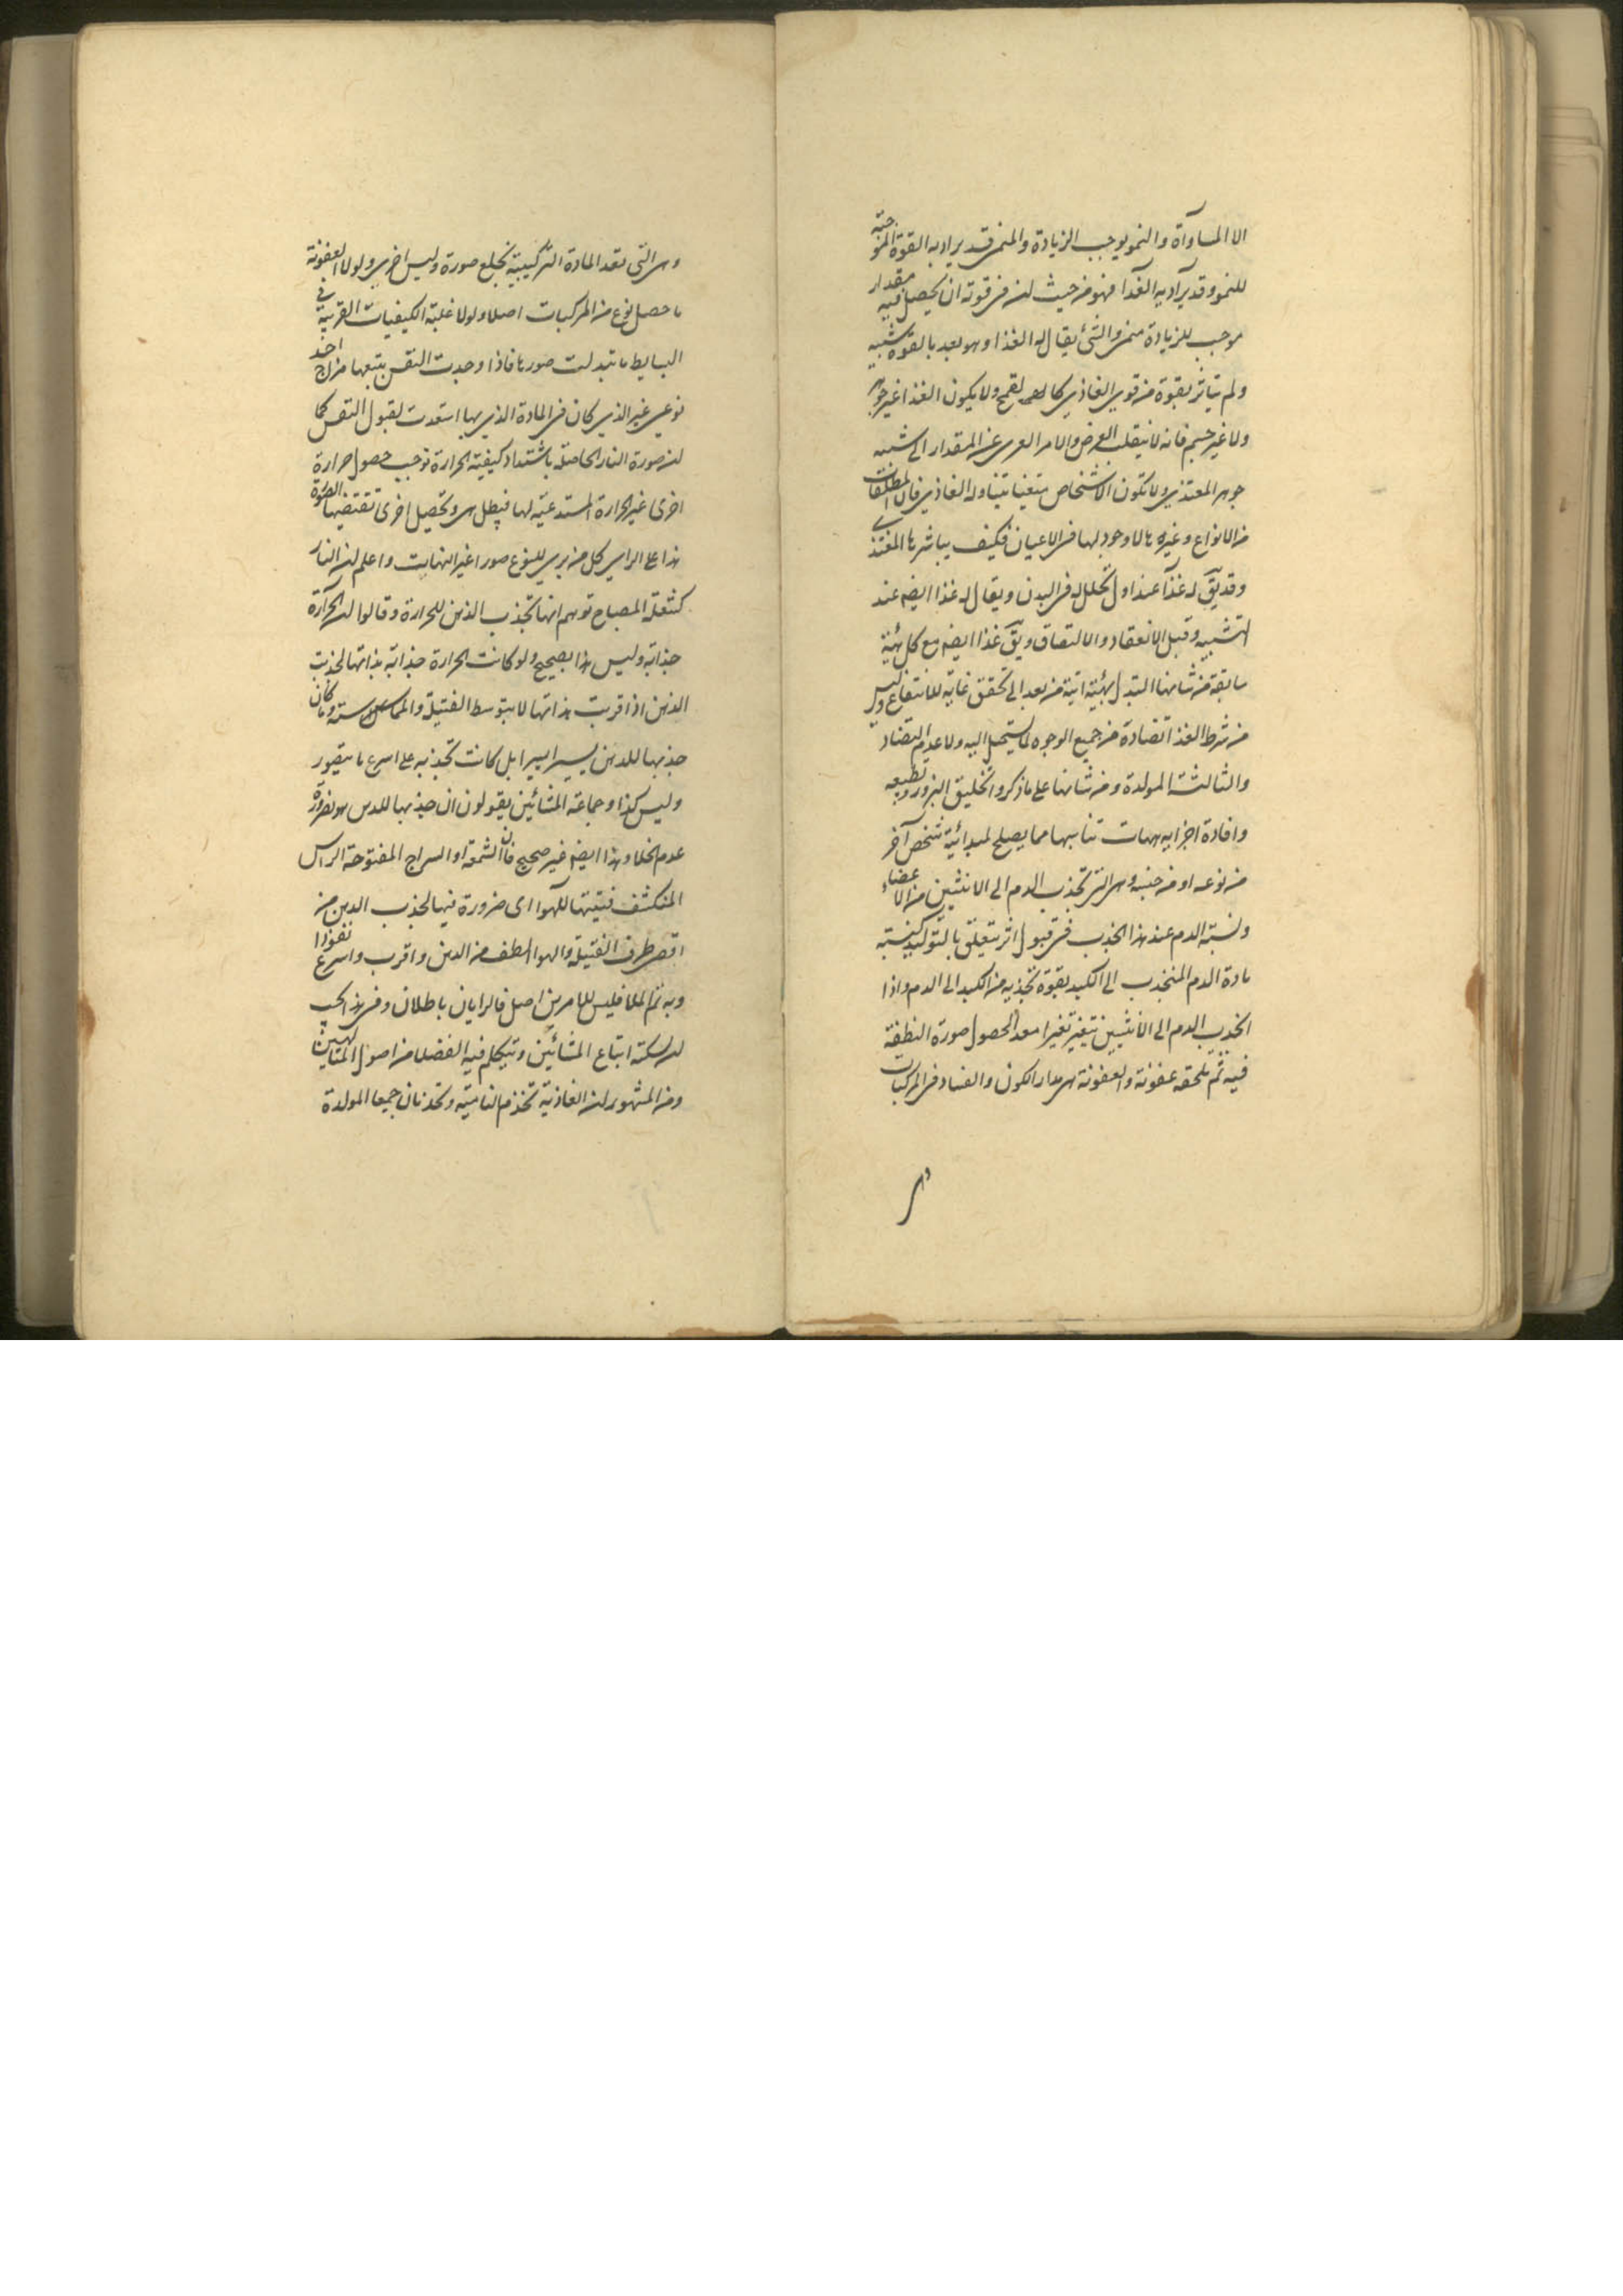 الا المساوآة والنمو يوجب الزيادة والمنمى قد يراد به القوة الموجبة
للنمو وقد يراد به الغذآ فهو من حيث ان فى قوته ان يحصل فيه مقدار
موجب للزيادة منمى والشئ يقال له الغذا وهو بعد بالقوة شبيه
ولم يتاثر بقوة من قوى الغاذى كالحمه لقمح ولا يكون الغذا غير جوهر
ولا غير جسم فانه لا ينقلب العرض والامر العرى عن المقدار الى شبه
جوهر المغتذى ولا تكون الاشخاص يتناوله الغاذى فان المطلقات
من الانواع وغيرها لا وجود لها فى الاعيان فكيف يباشرها المغتذى
وقد يق له غذآ عند اول تحلله فى البدن ويقال له غذا ايضه عند
التشبيه وقبل الانعقاد والالتصاق ويق غذا ايضه مع كل هيئة
سابقة من شانها التبدل بهيئة اتية من بعد الى تحقق غاية للانتفاع وليس
من شرط الغذا تضاده من جميع الوجوه لما يستحيل اليه ولا عدم التضاد
والثالثة المولدة ومن شانها على ما ذكروا تخليق البزور وتطبيعه
وافادة اجزايه هيات تناسبها مما يصلح لمبدائية شخص آخر
من نوعه او من جنسه وهى التى تجذب الدم الى الانثيين من الاعضاء
ونسبة الدم عند هذا الجذب فى قبول اثر متعلق بالتوليد كنسبة
مادة الدم المنجذب الى الكبد بقوة تجذبه من الكبد الى الدم واذا
انجذب الدم الى الانثيين يتغير تغيرا معدا لحصول صورة النطفة
فيه ثم تلحقه عفونة والعفونة هى مدار الكون والفساد فى المركبات
وهى
وهى التى تعد المادة التركيبية بخلع صورة ولبس اخرى ولولا العفونة
ما حصل نوع من المركبات اصلا ولولا غلبة الكيفيات الغريبة فى
البسايط ما تبدلت صورها فاذا وجدت النفس يتبعها مزاج اخد
نوعى غير الذى كان فى المادة الذى بها استعدت لقبول النفس كما
ان صورة النار الحاصلة باشتداد كيفية الحرارة توجب حصول حرارة
اخرى غير الحرارة المستدعية لها فيبطل هى وتحصيل اخرى تقتضيها الصورة
هذا على الراى كل من يرى للنوع صورا غير النهايت واعلم ان النار
كشعلة المصباح توهم انها تجذب الدهن للحرارة وقالوا ان الحرارة
جذابة وليس هذا بصحيح ولو كانت الحرارة جذابة بذاتها لجذبت
الدهن اذا قربت بذاتها لا بتوسط الفتيلة والمماس وما كان
جذبها للدهن يسيرا يسيرا بل كانت تجذبه على اسرع ما يتصور
وليس كذا وجماعة المشائين يقولون ان جذبها للدهن هو بضرورة
عدم الخلا وهذا ايضه غير صحيح فان الشمعة او السراج المفتوحة الراس
المنكشف فتيتها للهوا اى ضرورة فيها لجذب الدهن من
اقصى طرف الفتيلة والهوا الطف من الدهن واقرب واسرع نفوذا
وبه يتم الملا فليس للامرين اصل فالرايان باطلان وفى هذا يجب
ان يسكته اتباع المشائين ويتكلم فيه الفضلا من اصول المتالهين
ومن المشهور ان الغاذية تخذم النامية وتخدمان جميعا المولدة